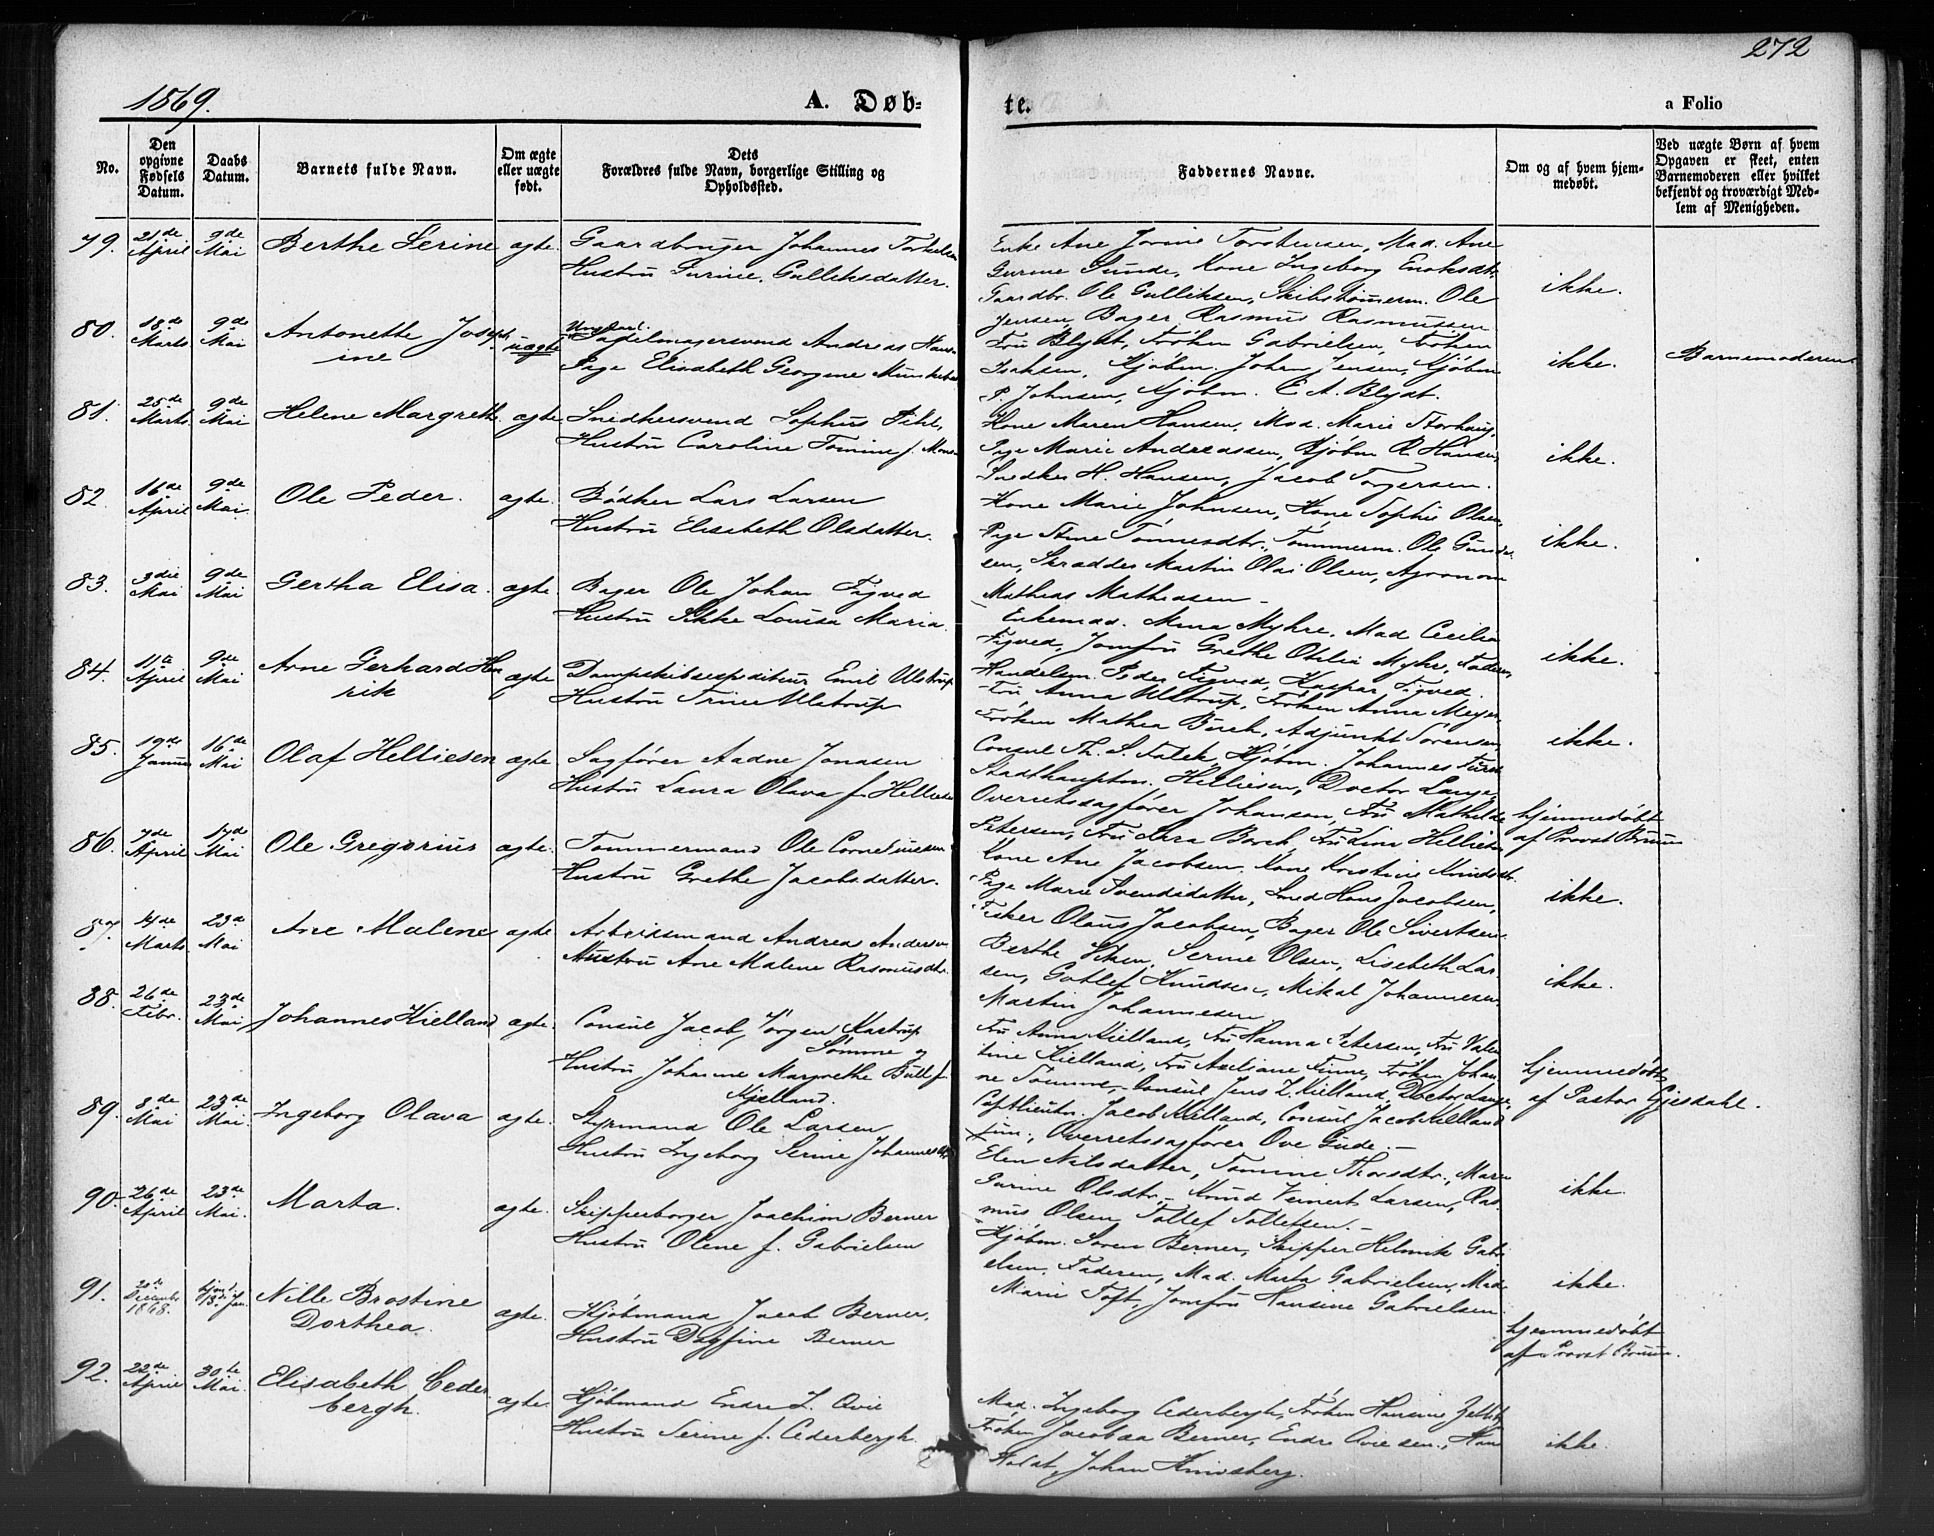 1869.
A. Døb-
te.
272
a Folio
No.
Den opgivne Fødsels Datum.
Daabs Datum.
Barnets fulde Navn.
Om ægte eller uægte født.
Dets Forældres fulde Navn, borgerlige Stilling og Opholdssted.
Faddernes Navne.
Om og af hvem hjemmedøbt.
Ved uægte Børn af hvem Opgaven er skeet, enten Barnemoderen eller hvilket bekjendt og troværdigt Medlem af Menigheden.
79. 21de April 9de Mai Berthe Serine ægte. Gaardbruger Johannes Torkelsen
Hustru Gurine Gulliksdatter.
Enke Ane Jorine Torstensen, Mad. Ane
Gurine Sunde, Kone Ingeborg Enoksdt.
Gaardbr. Ole Gulliksen, Skibstømerm. Ole
Jensen, Bager Rasmus Rasmussen
ikke.
80. 18de Marts 9de Mai Antonette Joseph
ine
uægte
Ungkarl.
Sadelmagersvend Andreas Hans
Pige Elisabeth Georgine
Fru Blydt, Frøken Gabrielsen, Frøken
Isaksen, Kjøbm. Johan Jensen, Kjøbm
P. Johnsen, Kjøbm. C. A. Blydt.
ikke.
Barnemoderen
81. 25de Marts 9de Mai Helene Margrethe ægte Snedkersvend Sophus Pihl,
Hustru Caroline Tomine f. Mons
Kone Maren Hansen, Mad. Marie Storhaug,
Pige Marie Andreassen, Kjøbm R. Hansen,
Snedker H. Hansen, Jacob Torgersen.
ikke.
82. 16de April 9de Mai. Ole Peder. ægte. Bødker Lars Larsen
Hustru Elisebeth Olsdatter.
Kone Marie Johnsen, Kone Sophie Olsen,
Pige Stine Tønnesdtr., Tømmerm. Ole Gunder
sen, Skrædder Martin Olai Olsen, Agronom
Mathias Mathiasen –
ikke.
83. 3die Mai 9de Mai Gertha Elisa. ægte Bager Ole Johan Figved
Hustru Sikke Louisa Maria.
Enkemad. Mina Myhre, Mad Cecilia
Figved, Jomfru Grethe Otelia Myhr, Faderen,
Handelsm. Peder Figved, Kaspar Figved.
ikke.
84. 11te April 9de Mai Arne Gerhard Hen
rik
ægte Dampskibsexpeditør Emil Ulstrup
Hustru Trine Ulstrup
Fru Anna Ulstrup, Frøken Anna Meyer
Frøken Mathea Borch, Adjunkt Sørensen,
Consul Th. S. Falck, Kjøbm. Johannes
ikke.
85. 19de Januar 16de Mai Olaf Helliesen ægte Sagfører Aadne Jonasen
Hustru Laura Olava f. Helliesen
Stadthauptm. Helliesen, Doctor Lange,
Overretssagfører Johansen, Fru Mathilde
Petersen, Fru Lora Borch, Fru Lina Helliesen
hjemmedøbt
af Provst Bruun
86. 7de April 17de Mai Ole Gregorius ægte. Tømmermand Ole Corneliussen
Hustru Grethe Jacobsdatter.
Kone Ane Jacobsen, Kone Kristine Knudsdtr.
Pige Marie Svendsdatter, Smed Hans Jacobsen,
Fisker Olaus Jacobsen, Bager Ole Sivertsen
ikke.
87. 14de Marts 23de Mai Ane Malene ægte Arbeidsmand Andrea Andersen
Hustru Ane Malene Rasmusdtr
Berthe Olsen, Serine Olsen, Lisebeth Lar
sen, Gotlef Knudsen, Mikal Johannesen
Martin Johannesen.
ikke.
88. 26de Febr. 23de Mai Johannes Kielland ægte. Consul Jacob Jørgen Kastrup
Sømme og
Hustru Johanne Margrethe Bull f.
Kjelland.
Fru Anna Kielland, Fru Hanna Petersen, Fru Valen
tine Kielland, Fru Axeliane Finne, Frøken Johan
ne Sømme, Consul Jens Z. Kielland, Doctor Lange,
Captlieutn. Jacob Kielland, Consul Jacob Kielland
jun., Overretssagfører Ove Gude. –
hjemmedøbt
af Pastor Gjesdahl.
89. 8de Mai 23de Mai. Ingeborg Olava ægte. Styrmand Ole Larsen
Hustru Ingeborg Serine Johannesdtr
Elen Nilsdatter, Tomine Thorsdtr., Maren
Gurine Olsdtr. Knud Veinert Larsen, Ras
mus Olsen, Tollef Tollefsen. –
ikke.
90. 26de April 23de Mai. Marta. ægte. Skipperborger Joachim Berner
Hustru Olene f. Gabrielsen
Kjøbm. Søren Berner, Skipper Helmik Gabri
elsen, Faderen, Mad. Marta Gabrielsen, Mad
Marie Toft, Jomfru Hansine Gabrielsen
ikke.
91. 20de December 1868. 13. Jan. Nille Brostine
Dorthea.
ægte. Kjøbmand Jacob Berner,
Hustru Dagfine Berner
hjemmedøbt
af Provst Bruun.
92. 22de April 30te Mai Elisabeth Ceder
bergh.
ægte. Kjøbmand Endre L. Ovie
Hustru Serine f. Cederbergh.
Mad. Ingeborg Cederbergh, Frøken Hansine
Frøken Jacobaa Berner, Endre Oviesen, Hans
Holst, Johan Knivsberg.
ikke.